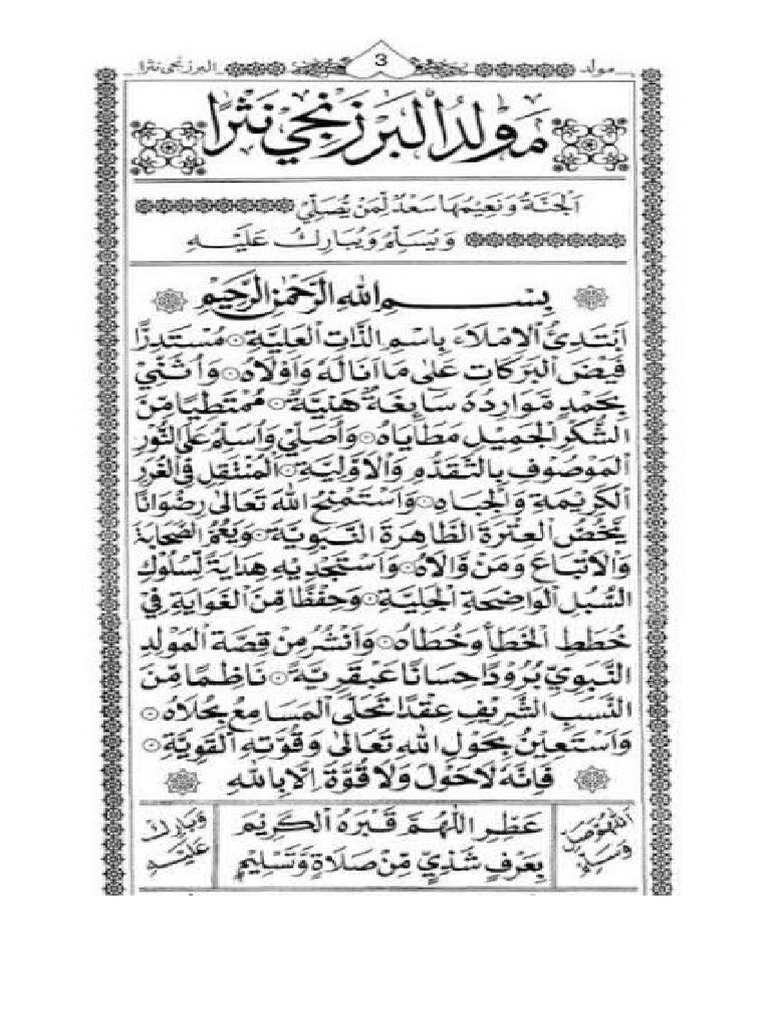 مولد
3
البرزنجي نثرا
مَوْلِدُ الْبَرْزَنْجِي نَثْرًا
اَلْجَنَّةُ وَنَعِيمُهَا سَعْدٌ لِّمَنْ يُصَلِّيْ
وَيُسَلِّمُ وَيُبَارِكُ عَلَيْهِ
بِسْمِ اللهِ الرَّحْمٰنِ الرَّحِيْمِ
اَبْتَدِئُ الْاِمْلَاءَ بِاسْمِ الذَّاتِ الْعَلِيَّةِ ۞ مُسْتَدِرًّا
فَيْضَ الْبَرَكَاتِ عَلَى مَا اَنَالَهُ وَاَوْلَاهُ ۞ وَاُثَنِّيْ
بِحَمْدٍ مَّوَارِدُهُ سَآئِغَةٌ هَنِيَّةٌ ۞ مُمْتَطِيًا مِّنَ
الشُّكْرِ الْجَمِيْلِ مَطَايَاهُ ۞ وَاُصَلِّيْ وَاُسَلِّمُ عَلَى النُّوْرِ
الْمَوْصُوْفِ بِالتَّقَدُّمِ وَالْاَوَّلِيَّةِ ۞ اَلْمُنْتَقِلِ فِى الْغُرَرِ
الْكَرِيْمَةِ وَالْجِبَاهِ ۞ وَاَسْتَمْنِحُ اللهَ تَعَالَى رِضْوَانًا
يَّخُصُّ الْعِتْرَةَ الطَّاهِرَةَ النَّبَوِيَّةَ ۞ وَيَعُمُّ الصَّحَابَةَ
وَالْاَتْبَاعَ وَمَنْ وَّالَاهُ ۞ وَاَسْتَجْدِيْهِ هِدَايَةً لِّسُلُوْكِ
السُّبُلِ الْوَاضِحَةِ الْجَلِيَّةِ ۞ وَحِفْظًا مِّنَ الْغَوَايَةِ فِيْ
خُطَطِ الْخَطَأِ وَخُطَاهُ ۞ وَاَنْشُرُ مِنْ قِصَّةِ الْمَوْلِدِ
النَّبَوِيِّ بُرُوْدًا حِسَانًا عَبْقَرِيَّةً ۞ نَاظِمًا مِّنَ
النَّسَبِ الشَّرِيْفِ عِقْدًا تَحَلَّى الْمَسَامِعُ بِحُلَاهُ ۞
وَاَسْتَعِيْنُ بِحَوْلِ اللهِ تَعَالَى وَقُوَّتِهِ الْقَوِيَّةِ ۞
فَاِنَّهُ لَا حَوْلَ وَلَا قُوَّةَ اِلَّا بِاللهِ
عَطِّرِ اللّٰهُمَّ قَبْرَهُ الْكَرِيْمَ
بِعَرْفٍ شَذِيٍّ مِّنْ صَلَاةٍ وَّتَسْلِيْمٍ
اَللّٰهُمَّ صَلِّ
وَسَلِّمْ
وَبَارِكْ
عَلَيْهِ